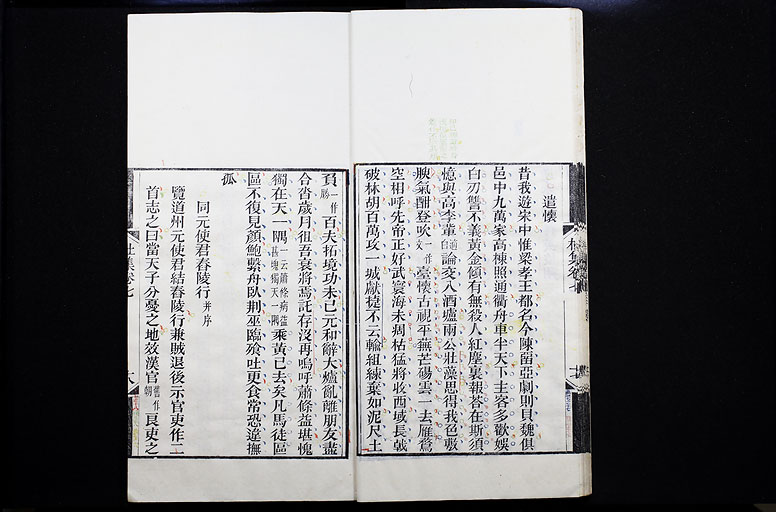 遣懷
昔我遊宋中惟梁孝王都名今陳畱亞劇則貝魏俱
邑中九萬家高棟照通衢舟車半天下主客多歡娛
白刃讐不義黃金傾有無殺人紅塵裏報荅在斯須
憶與高李輩適白論交入酒壚兩公壯藻思得我色敷
腴氣酣登吹一作文臺懷古視平蕪芒碭雲一去雁鶩
空相呼先帝正好武寰海未凋枯猛將收西域長戟
破林胡百萬攻一城獻捷不云輸組練棄如泥尺土
負一作勝百夫拓境功未已元和辭大爐亂離朋友盡
合沓歲月徂吾衰將焉託存沒再嗚呼蕭條益堪愧
獨在天一隅一云蕭條病益甚塊獨天一隅乘黃已去矣凡馬徒區
區不復見顏鮑繫舟臥荆巫臨飱吐更食常恐違撫
孤
同元使君舂陵行并序
覽道州元使君結舂陵行兼賊退後示官吏作二
首志之曰當天子分憂之地效漢官舊作朝良吏之
杜集卷七
杜集卷七